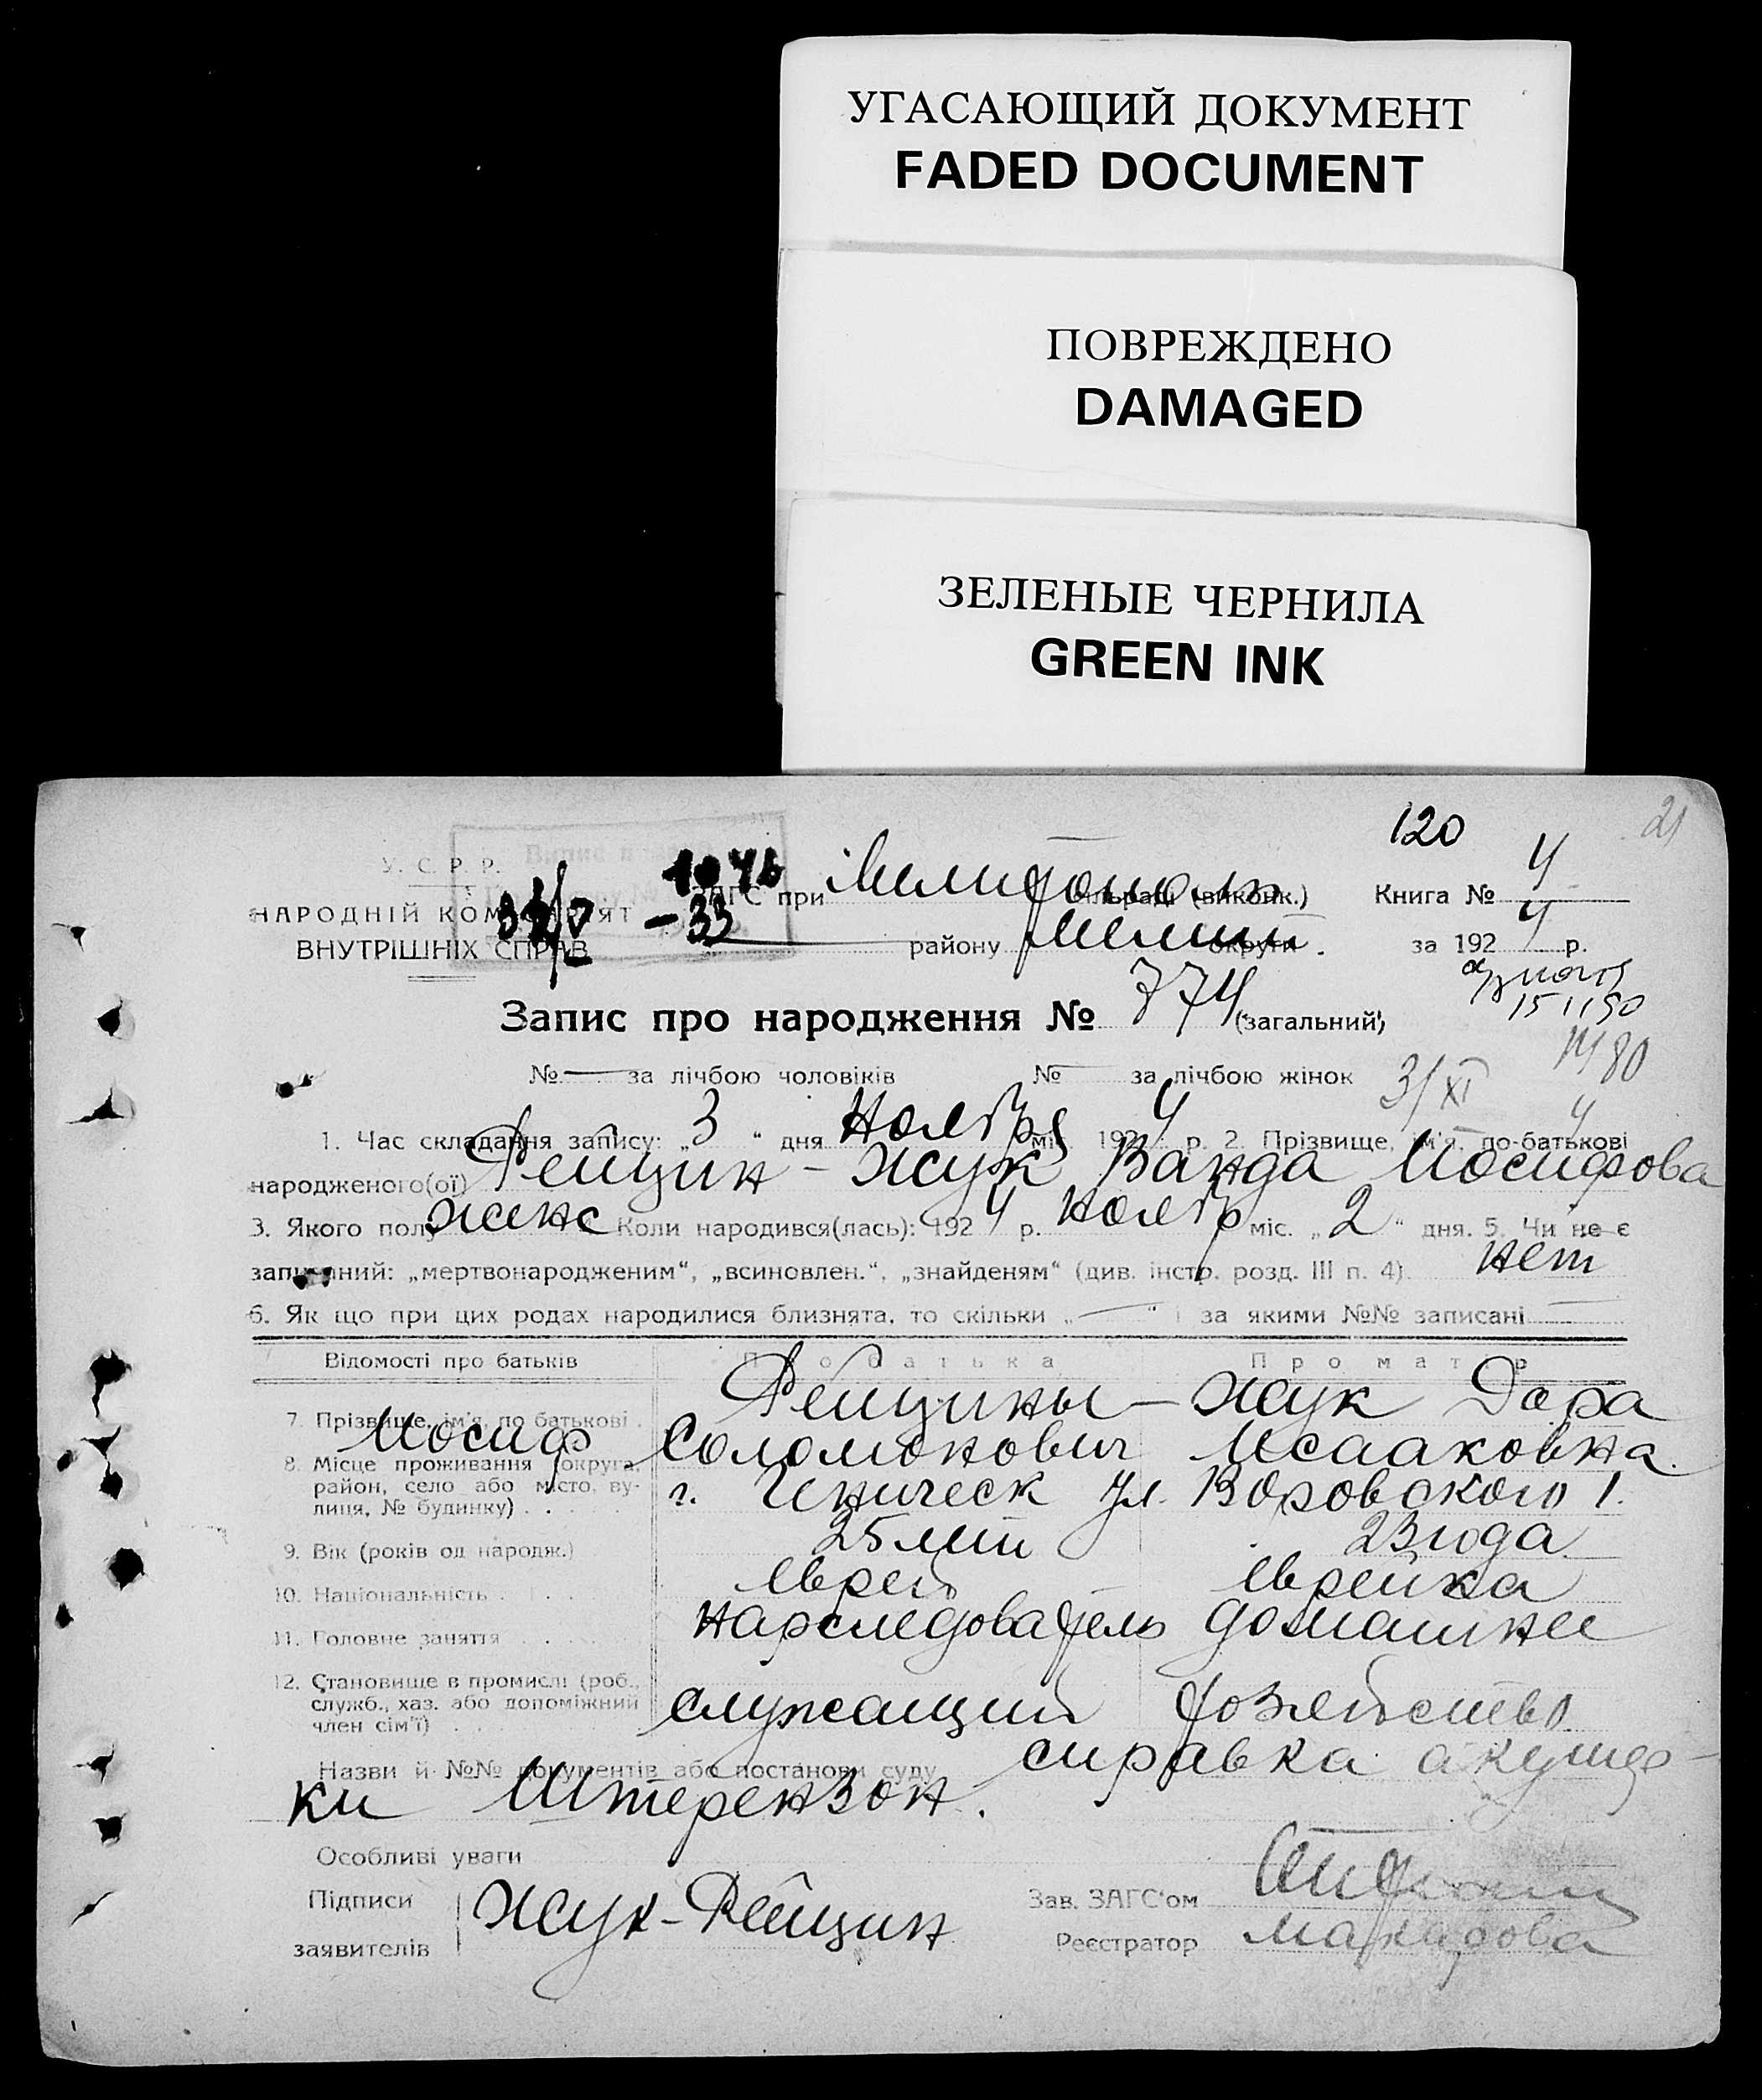 УГАСАЮЩИЙ ДОКУМЕНТ
FADED DOCUMENT
ПОВРЕЖДЕНО
DAMAGED
ЗЕЛЕНЫЕ ЧЕРНИЛА
GREEN INK
120 21
У. С. Р. Р.
НАРОДНІЙ КОМ
ВНУТРІШНІХ СПРАВ
1046
- 33
ЗАГС при Мелитополь сільраді (виконк.) Книга № 4
району Мелит округи за 1924 р.
15 11 50
Запис про народження № 774 (загальний)
80
№ — за лічбою чоловіків № — за лічбою жінок 3/XI
4
1. Час складання запису: „3“ дня Ноября міс. 1924 р. 2. Прізвище, ім'я, по-батькові
народженого(ої) Фейцин - Жук Ванда Иосифова
3. Якого полу женс Коли народився(лась): 1924 р. Ноябр міс. „2“ дня. 5. Чи не є
записаний: „мертвонародженим“, „всиновлен.“, „знайденям“ (див. інстр. розд. III п. 4). нет
6. Як що при цих родах народилися близнята, то скільки „—“ і за якими №№ записані —
Відомості про батьків Про батька Про матір
7. Прізвище, ім'я, по батькові Фейцины - Жук Дора
Иосиф Соломонович Исааковна
8. Місце проживання (округа, район, село або місто, вулиця, № будинку) . . г. Геническ ул. Воровского 1.
9. Вік (років од народж.) 25 лет 23 года
10. Національність . . . еврей еврейка
11. Головне заняття . . . нарследователь домашнее
12. Становище в промислі (роб., служб., хаз. або допоміжний член сім'ї) . . служащий хозяйство
Назви й №№ документів або постанови суду справка акушер-
ки Штерензон.
Особливі уваги
Підписи заявителів Жук-Фейцин
Зав. ЗАГС'ом
Реєстратор